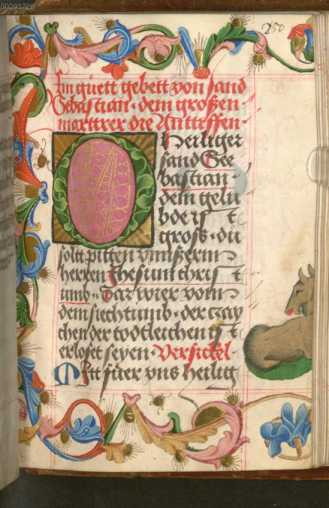 Ein guett gebett von sand
Sebastian · dem grossen ·
martrer die Anttiffen ·
O Heiliger
sand See
bastian ·
dein gelu
bde ist
gross · du
solt pitten vnnsserm
herren Jhesum christ
umb · Das wier vom
dem siechtumb · der zay
chen der todtleichen
erloset seyen · Versickel ·
Pit fuer vns heilig